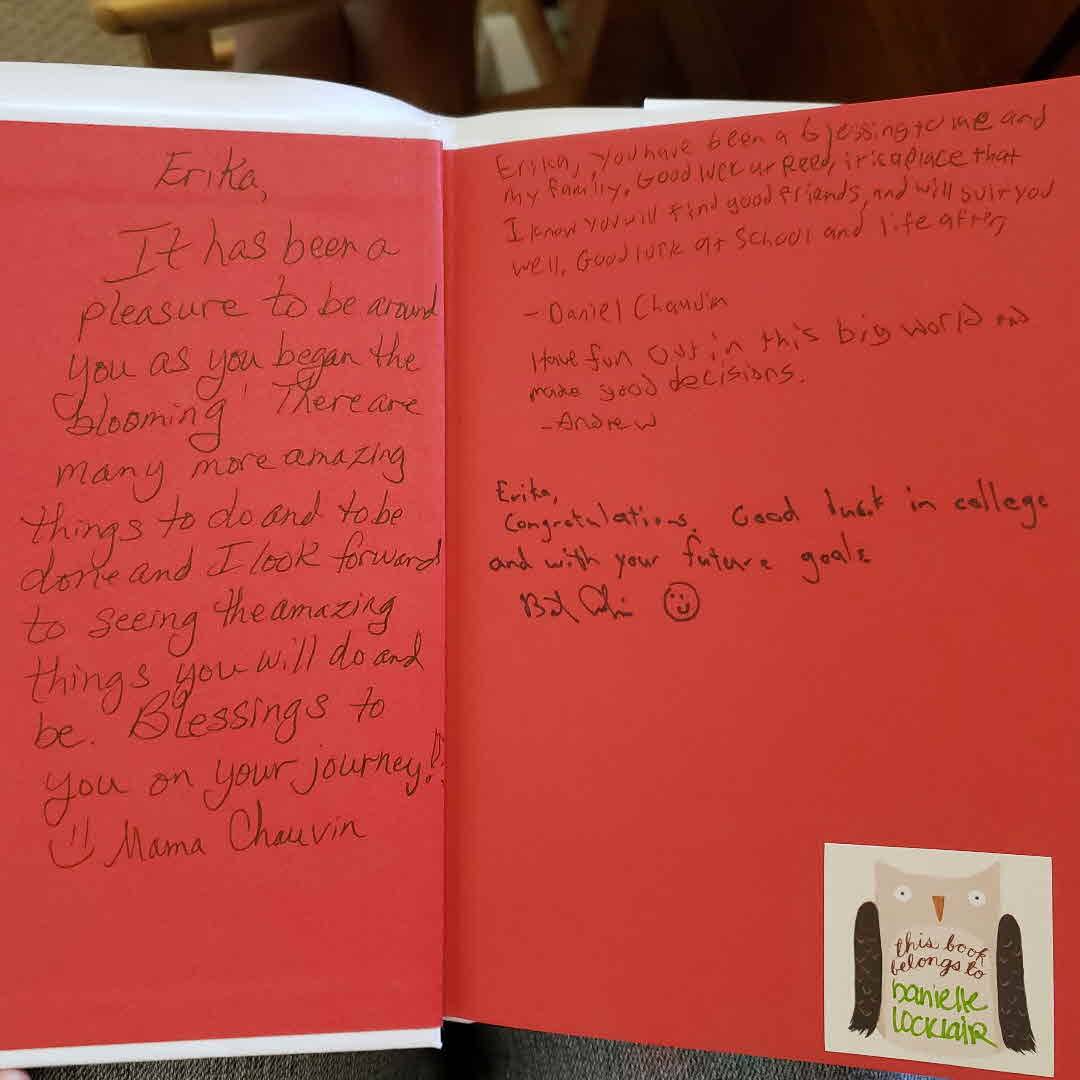 Erika,
It has been a
pleasure to be around
you as you began the
blooming! There are
many more amazing
things to do and to be
done and I look forward
to seeing the amazing
things you will do and
be. Blessings to
you on your journey!
Mama Chauvin
Erika, you have been a blessing to me and
my family. Good luck at Reed, it is a place that
I know you will find good friends, and will suit you
well. Good luck at School and life after,
- Daniel Chauvin
Have fun out in this big world and
make good decisions.
- Andrew
Erika,
Congratulations. Good luck in college
and with your future goals
this book
belongs to
Danielle
Locklair